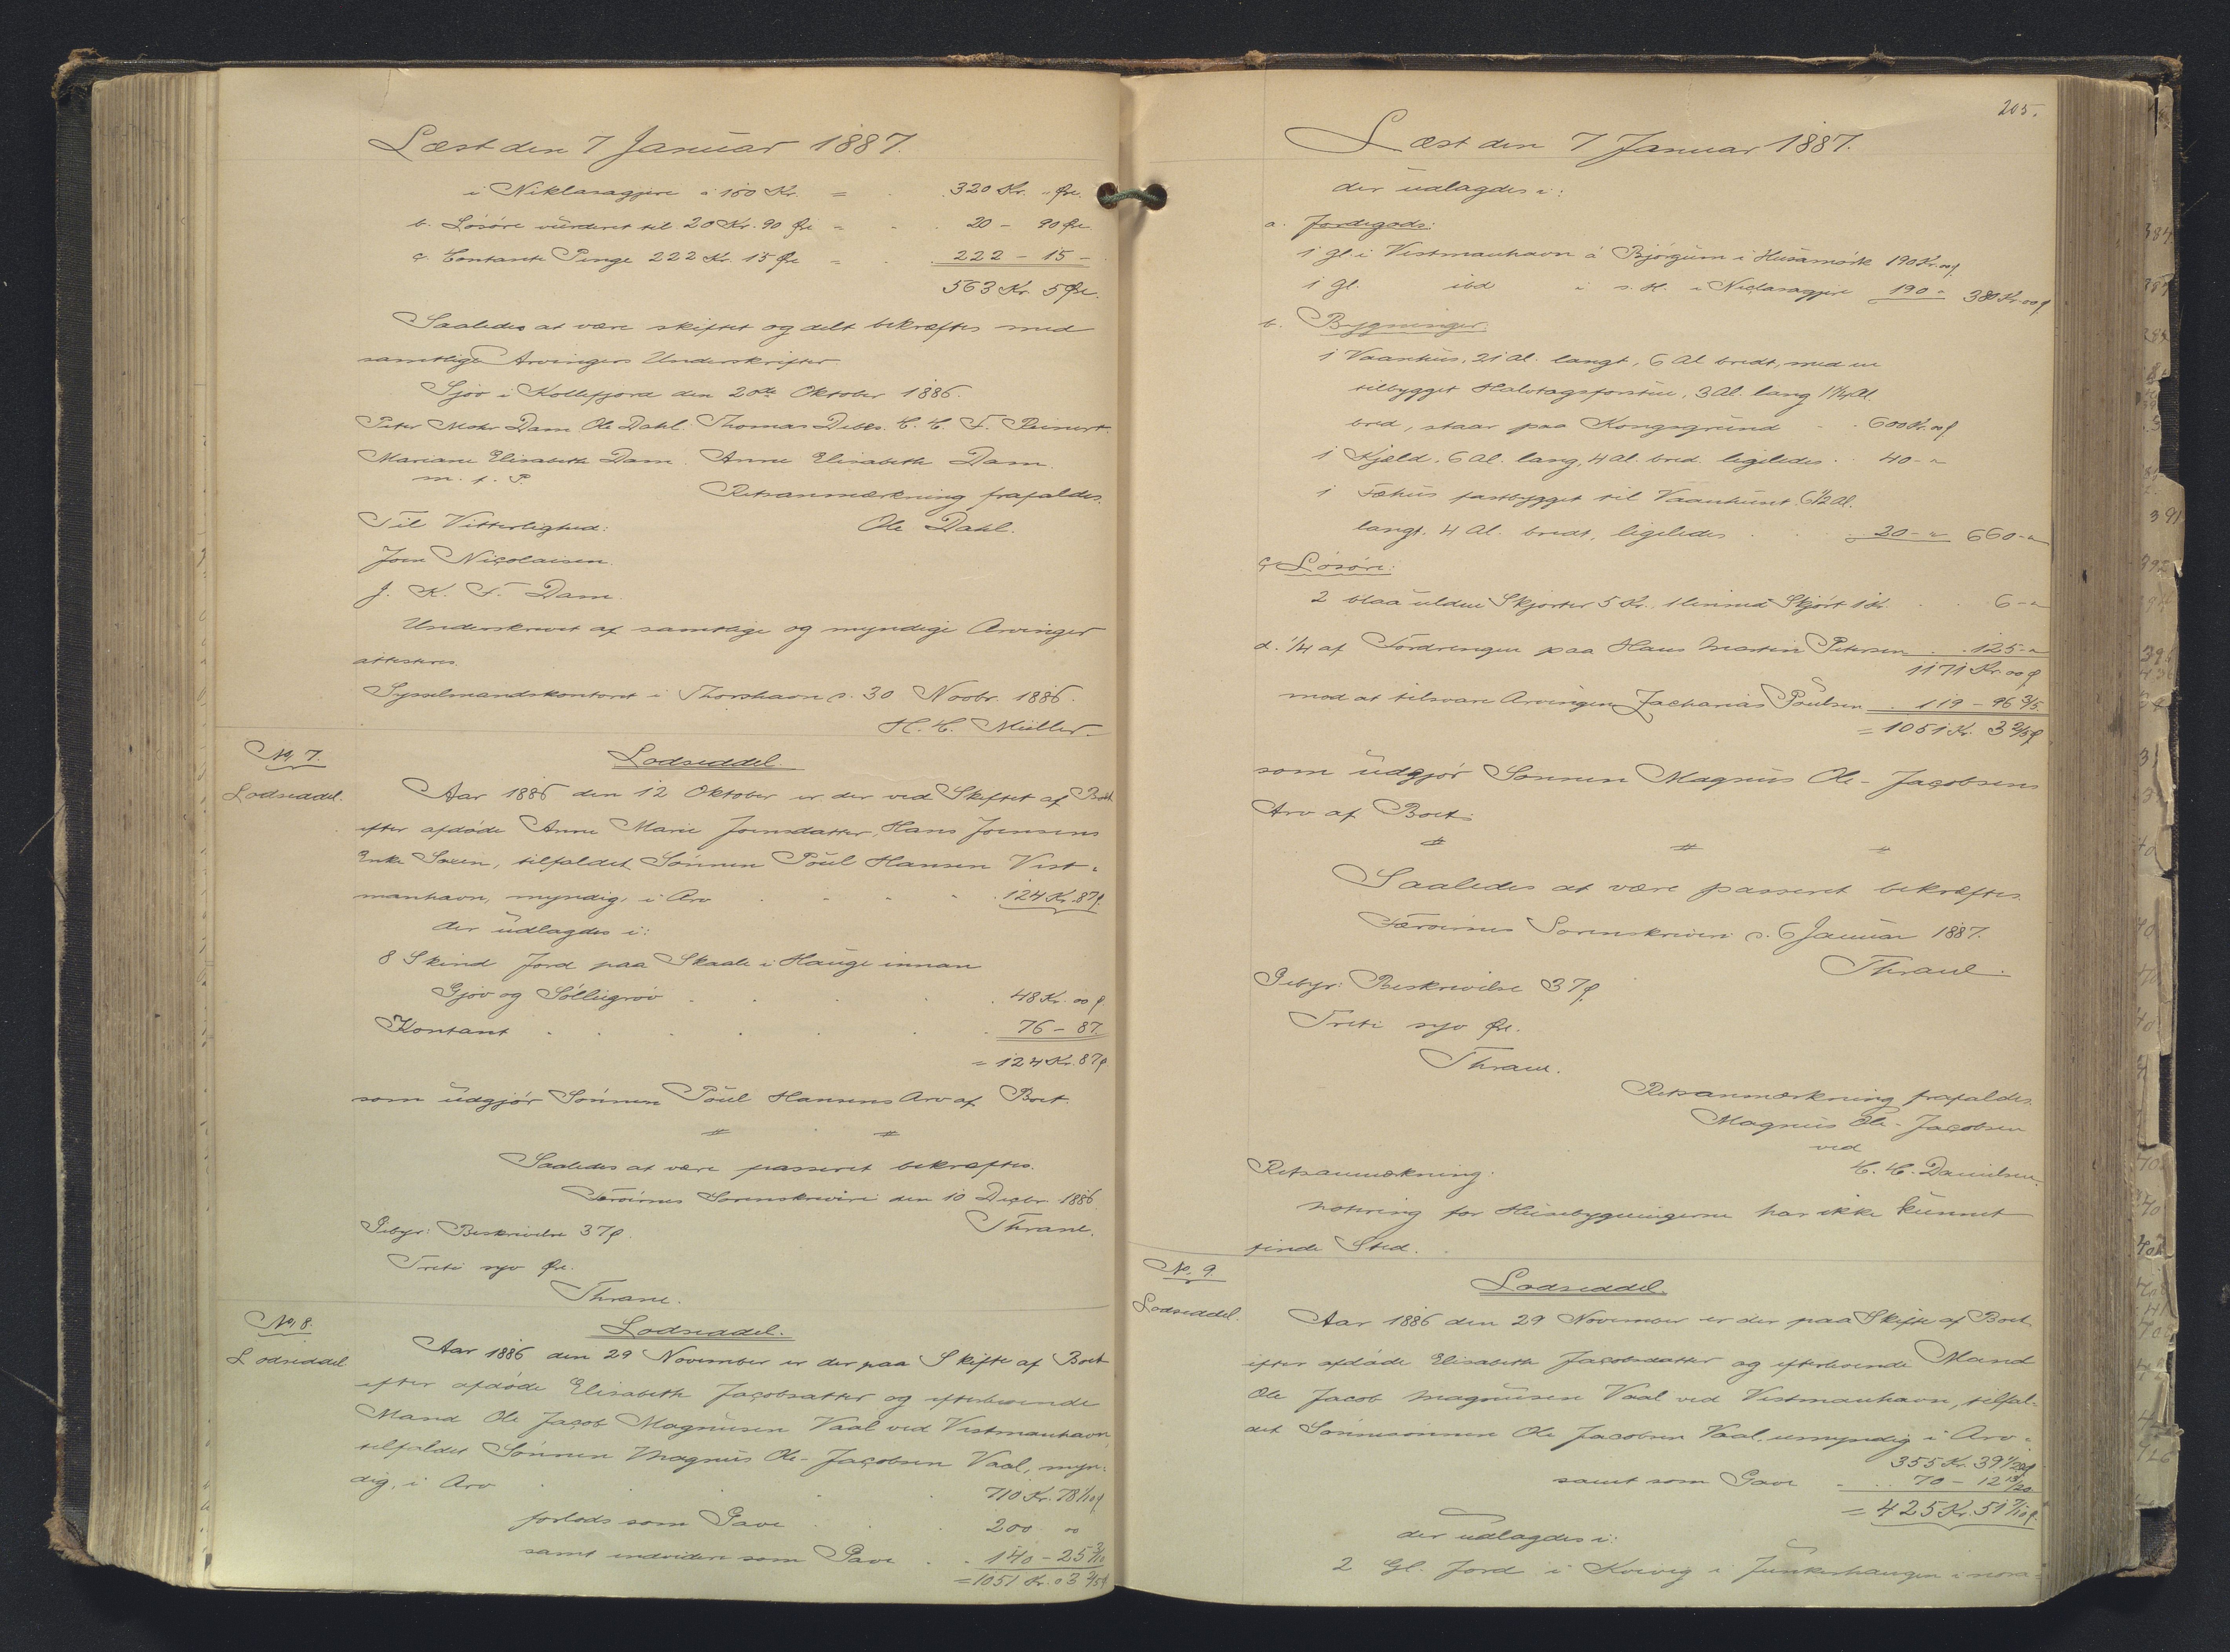 Læst den 7 Januar 1887.
i Niklasagjøre á 160 Kr. = 320 Kr. " Øre.
b. Løsøre vurderet til 20 Kr. 90 Øre = 20 - 90 Øre.
c. Contante Penge 222 Kr. 15 Øre = 222 - 15 -
563 Kr. 5 Øre.
Saaledes at være skiftet og delt bekræftes med
samtlige Arvingers Underskrifter.
Sjov i Kollefjord den 20de Oktober 1886.
Peter Mohr Dam. Ole Dahl. Thomas Debes. C. C. F. Reinert.
Mariane Elisabeth Dam. Anne Elisabeth Dam.
m. f. P.
Retsanmærkning frafaldes.
Til Vitterlighed: Ole Dahl.
Joen Nicolaisen.
J. K. F. Dam.
Underskrevet af samtlige og myndige Arvinger
attesteres.
Sysselmandskontoret i Thorshavn d. 30 Novbr. 1886.
H. C. Müller.
No. 7. Lodseddel.
Lodseddel. Aar 1886 den 12 Oktober er der ved Skiftet af Boet
efter afdøde Anne Marie Joensdatter, Hans Joensens
Enke Sxen, tilfaldet Sønnen Poul Hansen Vest-
manhavn, myndig, i Arv 124 Kr. 87 ø.
der udlagdes i:
8 Skind Jord paa Skaale i Hauge innan
Gjov og Søllugrov 48 Kr. 00 ø.
Kontant 76 - 87.
= 124 Kr. 87 ø
som udgjør Sønnen Poul Hansens Arv af Boet.
Saaledes at være passeret bekræftes.
Færøernes Sorenskriveri den 10 Decbr. 1886
Gebyr: Beskrivelse 37 ø. Thrane.
Treti syv Øre.
Thrane.
No. 8. Lodseddel.
Lodseddel Aar 1886 den 29 November er der paa Skifte af Boet
efter afdøde Elisabeth Jacobsatter og efterlevende
Mand Ole Jacob Magnusen Vaal ved Vestmanhavn,
tilfaldet Sønnen Magnus Ole-Jacobsen Vaal, myn-
dig, i Arv 710 Kr. 78 1/10 ø
forlods som Gave 200 00
samt endvidere som Gave 140 - 25 3/10
= 1051 Kr. 03 2/5 ø
205.
Læst den 7 Januar 1887.
der udlagdes i:
a. Jordegods:
1 Gl. i Vestmanhavn á Bjørgum i Husamørk 190 Kr. 00 ø
1 Gl. ibd i s. H. i Niclasagjøre 190 - " 380 Kr. 00 ø
b. Bygninger.
1 Vaanhus, 21 Al. langt, 6 Al bredt, med en
tilbygget Halvtagsforstue, 3 Al. lang 1 1/4 Al.
bred, staar paa Kongsgrund 600 Kr. 00 ø
1 Kjæld, 6 Al. lang, 4 Al. bred. ligeledes 40 - "
1 Fæhus fastbygget til Vaanhuset 6 1/2 Al.
langt. 4 Al. bredt, ligeledes 20 - " 660 - "
c. Løsøre:
2 blaa uldne Skjorter 5 Kr., 1 linned Skjørt 1 Kr. 6 - "
d. 1/4 af Fordringen paa Hans Martin Petersen 125 - "
1171 Kr. 00 ø
mod at tilsvare Arvingen Jacharias Poulsen 119 - 96 3/5
= 1051 Kr. 3 2/5 ø
som udgjør Sønnen Magnus Ole-Jacobsens
Arv af Boet.
Saaledes at være passeret bekræftes.
Færøernes Sorenskriveri d. 6 Januar 1887.
Thrane.
Gebyr: Beskrivelse 37 ø.
Treti syv Øre.
Thrane.
Retsanmærkning frafaldes.
Magnus Ole-Jacobsen
ved
C. C. Danielsen.
Retsanmærkning:
Notering for Husebygningerne har ikke kunnet
finde Sted.
No. 9. Lodseddel.
Lodseddel. Aar 1886 den 29 November er der paa Skifte af Boet
efter afdøde Elisabeth Jacobsdatter og efterlevende Mand
Ole Jacob Magnusen Vaal ved Vestmanhavn, tilfal-
det Sønnesønnen Ole Jacobsen Vaal, umyndig i Arv
355 Kr. 39 1/20 ø
samt som Gave 70 - 12 13/20
= 425 Kr. 51 7/10 ø.
der udlagdes i:
2 Gl. Jord i Kvivig i Junkershaugen i nora-